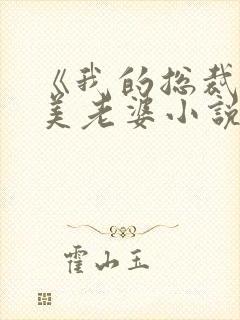 《我的总裁
美老婆小説
霍山玉